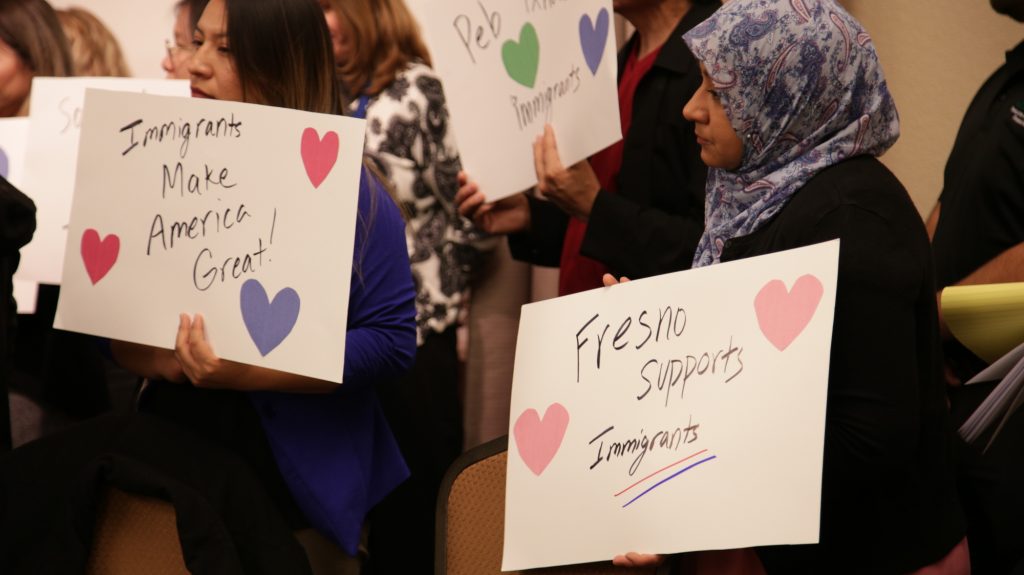 Immigrants
Make
America
Great!
Peb
immigrants
Fresno
Supports
Immigrants